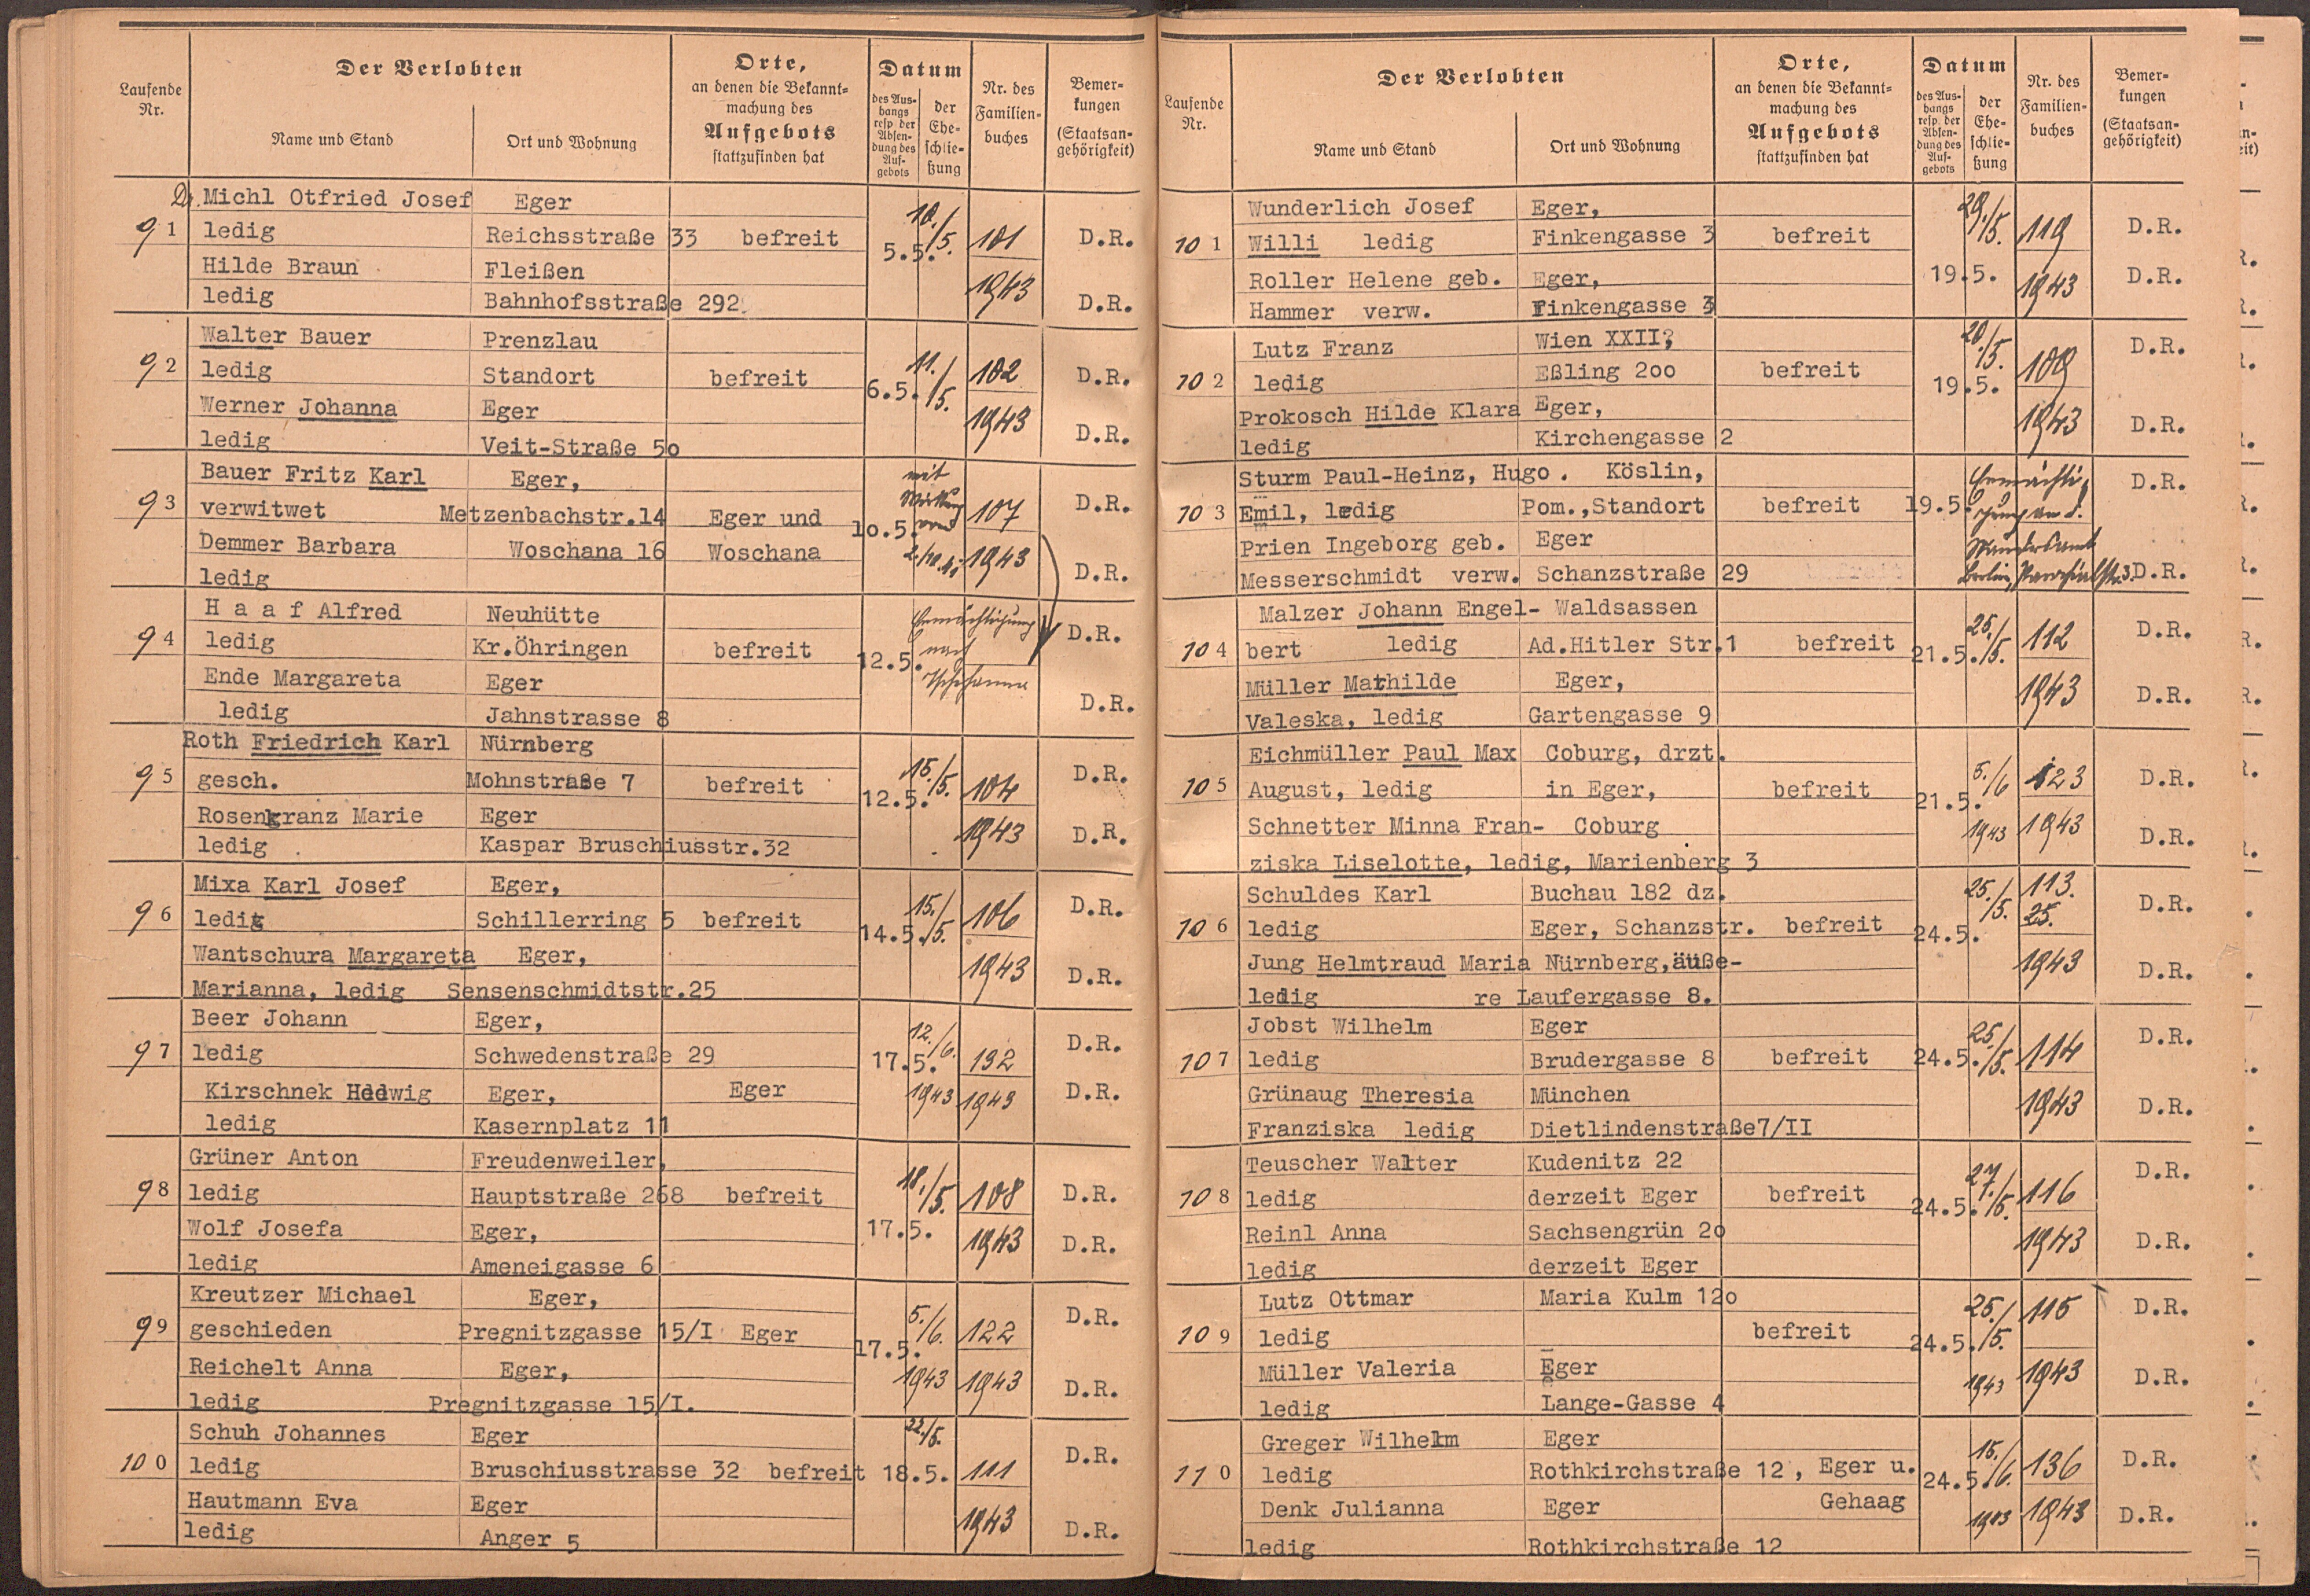 Laufende Nr.
Der Verlobten
Name und Stand
Ort und Wohnung
Orte, an denen die Bekannt-
machung des
Aufgebots
stattzufinden hat
Datum
des Aus-
hangs
resp. der
Absen-
dung des
Auf-
gebots
der
Ehe-
schlie-
ßung
Nr. des
Familien-
buches
Bemer-
kungen
(Staatsan-
gehörigkeit)
Dr. Michl Otfried Josef Eger 10./5.
91 ledig Reichsstraße 33 befreit 5.5. 101 D.R.
Hilde Braun Fleißen 1943
ledig Bahnhofsstraße 292 D.R.
Walter Bauer Prenzlau 11./5.
92 ledig Standort befreit 6.5. 102 D.R.
Werner Johanna Eger 1943
ledig Veit-Straße 5o D.R.
Bauer Fritz Karl Eger, mit
93 verwitwet Metzenbachstr.14 Eger und 1o.5. Wirkung 107 D.R.
Demmer Barbara Woschana 16 Woschana 1943
ledig D.R.
H a a f Alfred Neuhütte Ermächtigung
94 ledig Kr.Öhringen befreit 12.5. nach D.R.
Ende Margareta Eger
ledig Jahnstrasse 8 D.R.
Roth Friedrich Karl Nürnberg 15./5.
95 gesch. Mohnstraße 7 befreit 12.5. 104 D.R.
Rosenkranz Marie Eger 1943
ledig Kaspar Bruschiusstr.32 D.R.
Mixa Karl Josef Eger, 15./5.
96 ledig Schillerring 5 befreit 14.5. 106 D.R.
Wantschura Margareta Eger, 1943
Marianna, ledig Sensenschmidtstr.25 D.R.
Beer Johann Eger, 12./6.
97 ledig Schwedenstraße 29 17.5. 132 D.R.
Kirschnek Hedwig Eger, Eger 1943 1943 D.R.
ledig Kasernplatz 11
Grüner Anton Freudenweiler, 18./5.
98 ledig Hauptstraße 268 befreit 108 D.R.
Wolf Josefa Eger, 17.5. 1943 D.R.
ledig Ameneigasse 6
Kreutzer Michael Eger, 5./6. D.R.
99 geschieden Pregnitzgasse 15/I Eger 17.5. 122
Reichelt Anna Eger, 1943 1943 D.R.
ledig Pregnitzgasse 15/I.
Schuh Johannes Eger 22./5.
100 ledig Bruschiusstrasse 32 befreit 18.5. 111 D.R.
Hautmann Eva Eger 1943
ledig Anger 5 D.R.
Laufende Nr.
Der Verlobten
Name und Stand
Ort und Wohnung
Orte,
an denen die Bekannt-
machung des
Aufgebots
stattzufinden hat
Datum
des Aus-
hangs
resp. der
Absen-
dung des
Auf-
gebots
der
Ehe-
schlie-
ßung
Nr. des
Familien-
buches
Bemer-
kungen
(Staatsan-
gehörigkeit)
Wunderlich Josef Eger, 29./5.
101 Willi ledig Finkengasse 3 befreit 119 D.R.
Roller Helene geb. Eger, 19.5. 1943 D.R.
Hammer verw. Finkengasse 3
Lutz Franz Wien XXII, 20./5. D.R.
102 ledig Eßling 2oo befreit 19.5. 109
Prokosch Hilde Klara Eger, 1943 D.R.
ledig Kirchengasse 2
Sturm Paul-Heinz, Hugo. Köslin, Ermächti- D.R.
103 Emil, ledig Pom.,Standort befreit 19.5. gung an d.
Prien Ingeborg geb. Eger Standesamt
Messerschmidt verw. Schanzstraße 29 Berlin, D.R.
Malzer Johann Engel- Waldsassen 25./5.
104 bert ledig Ad.Hitler Str.1 befreit 21.5. 112 D.R.
Müller Mathilde Eger, 1943 D.R.
Valeska, ledig Gartengasse 9
Eichmüller Paul Max Coburg, drzt.
105 August, ledig in Eger, befreit 21.5. 5./6 123 D.R.
Schnetter Minna Fran- Coburg 1943 1943 D.R.
ziska Liselotte, ledig, Marienberg 3
Schuldes Karl Buchau 182 dz. 25./5. 113. D.R.
106 ledig Eger, Schanzstr. befreit 24.5. 25.
Jung Helmtraud Maria Nürnberg,äuße- 1943 D.R.
ledig re Laufergasse 8.
Jobst Wilhelm Eger 25./5. D.R.
107 ledig Brudergasse 8 befreit 24.5. 114
Grünaug Theresia München 1943 D.R.
Franziska ledig Dietlindenstraße7/II
Teuscher Walter Kudenitz 22 27./5. D.R.
108 ledig derzeit Eger befreit 24.5. 116
Reinl Anna Sachsengrün 2o 1943 D.R.
ledig derzeit Eger
Lutz Ottmar Maria Kulm 12o 25./5. 115 D.R.
109 ledig befreit 24.5.
Müller Valeria Eger 1943 1943 D.R.
ledig Lange-Gasse 4
Greger Wilhelm Eger 15./6.
110 ledig Rothkirchstraße 12, Eger u. 24.5. 136 D.R.
Denk Julianna Eger Gehaag 1943 1943 D.R.
ledig Rothkirchstraße 12